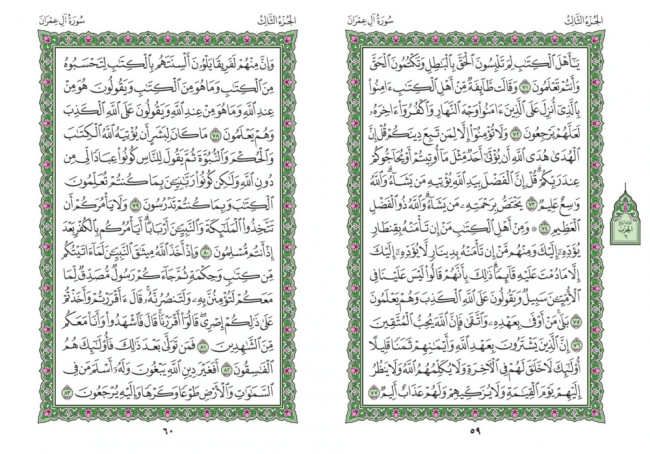 الجزء الثالث
سورة آل عمران
يَٰٓأَهْلَ ٱلْكِتَٰبِ لِمَ تَلْبِسُونَ ٱلْحَقَّ بِٱلْبَٰطِلِ وَتَكْتُمُونَ ٱلْحَقَّ
وَأَنتُمْ تَعْلَمُونَ ٧١ وَقَالَت طَّآئِفَةٌ مِّنْ أَهْلِ ٱلْكِتَٰبِ ءَامِنُوا۟
بِٱلَّذِىٓ أُنزِلَ عَلَى ٱلَّذِينَ ءَامَنُوا۟ وَجْهَ ٱلنَّهَارِ وَٱكْفُرُوٓا۟ ءَاخِرَهُۥ
لَعَلَّهُمْ يَرْجِعُونَ ٧٢ وَلَا تُؤْمِنُوٓا۟ إِلَّا لِمَن تَبِعَ دِينَكُمْ قُلْ إِنَّ
ٱلْهُدَىٰ هُدَى ٱللَّهِ أَن يُؤْتَىٰٓ أَحَدٌ مِّثْلَ مَآ أُوتِيتُمْ أَوْ يُحَآجُّوكُمْ
عِندَ رَبِّكُمْ ۗ قُلْ إِنَّ ٱلْفَضْلَ بِيَدِ ٱللَّهِ يُؤْتِيهِ مَن يَشَآءُ ۗ وَٱللَّهُ
وَٰسِعٌ عَلِيمٌ ٧٣ يَخْتَصُّ بِرَحْمَتِهِۦ مَن يَشَآءُ ۗ وَٱللَّهُ ذُو ٱلْفَضْلِ
ٱلْعَظِيمِ ٧٤ ۞ وَمِنْ أَهْلِ ٱلْكِتَٰبِ مَنْ إِن تَأْمَنْهُ بِقِنطَارٍ
يُؤَدِّهِۦٓ إِلَيْكَ وَمِنْهُم مَّنْ إِن تَأْمَنْهُ بِدِينَارٍ لَّا يُؤَدِّهِۦٓ إِلَيْكَ
إِلَّا مَا دُمْتَ عَلَيْهِ قَآئِمًا ۗ ذَٰلِكَ بِأَنَّهُمْ قَالُوا۟ لَيْسَ عَلَيْنَا فِى
ٱلْأُمِّيِّـۧنَ سَبِيلٌ وَيَقُولُونَ عَلَى ٱللَّهِ ٱلْكَذِبَ وَهُمْ يَعْلَمُونَ
٧٥ بَلَىٰ مَنْ أَوْفَىٰ بِعَهْدِهِۦ وَٱتَّقَىٰ فَإِنَّ ٱللَّهَ يُحِبُّ ٱلْمُتَّقِينَ
٧٦ إِنَّ ٱلَّذِينَ يَشْتَرُونَ بِعَهْدِ ٱللَّهِ وَأَيْمَٰنِهِمْ ثَمَنًا قَلِيلًا
أُو۟لَٰٓئِكَ لَا خَلَٰقَ لَهُمْ فِى ٱلْءَاخِرَةِ وَلَا يُكَلِّمُهُمُ ٱللَّهُ وَلَا يَنظُرُ
إِلَيْهِمْ يَوْمَ ٱلْقِيَٰمَةِ وَلَا يُزَكِّيهِمْ وَلَهُمْ عَذَابٌ أَلِيمٌ ٧٧
٥٩
الحزب
٦
الجزء الثالث
سورة آل عمران
وَإِنَّ مِنْهُمْ لَفَرِيقًا يَلْوُۥنَ أَلْسِنَتَهُم بِٱلْكِتَٰبِ لِتَحْسَبُوهُ
مِنَ ٱلْكِتَٰبِ وَمَا هُوَ مِنَ ٱلْكِتَٰبِ وَيَقُولُونَ هُوَ مِنْ
عِندِ ٱللَّهِ وَمَا هُوَ مِنْ عِندِ ٱللَّهِ وَيَقُولُونَ عَلَى ٱللَّهِ ٱلْكَذِبَ
وَهُمْ يَعْلَمُونَ ٧٨ مَا كَانَ لِبَشَرٍ أَن يُؤْتِيَهُ ٱللَّهُ ٱلْكِتَٰبَ
وَٱلْحُكْمَ وَٱلنُّبُوَّةَ ثُمَّ يَقُولَ لِلنَّاسِ كُونُوا۟ عِبَادًا لِّى مِن
دُونِ ٱللَّهِ وَلَٰكِن كُونُوا۟ رَبَّٰنِيِّـۧنَ بِمَا كُنتُمْ تُعَلِّمُونَ
ٱلْكِتَٰبَ وَبِمَا كُنتُمْ تَدْرُسُونَ ٧٩ وَلَا يَأْمُرَكُمْ أَن
تَتَّخِذُوا۟ ٱلْمَلَٰٓئِكَةَ وَٱلنَّبِيِّـۧنَ أَرْبَابًا ۗ أَيَأْمُرُكُم بِٱلْكُفْرِ بَعْدَ
إِذْ أَنتُم مُّسْلِمُونَ ٨٠ وَإِذْ أَخَذَ ٱللَّهُ مِيثَٰقَ ٱلنَّبِيِّـۧنَ لَمَآ ءَاتَيْتُكُم
مِّن كِتَٰبٍ وَحِكْمَةٍ ثُمَّ جَآءَكُمْ رَسُولٌ مُّصَدِّقٌ لِّمَا
مَعَكُمْ لَتُؤْمِنُنَّ بِهِۦ وَلَتَنصُرُنَّهُۥ ۚ قَالَ ءَأَقْرَرْتُمْ وَأَخَذْتُمْ
عَلَىٰ ذَٰلِكُمْ إِصْرِى ۖ قَالُوٓا۟ أَقْرَرْنَا ۚ قَالَ فَٱشْهَدُوا۟ وَأَنَا۠ مَعَكُم
مِّنَ ٱلشَّٰهِدِينَ ٨١ فَمَن تَوَلَّىٰ بَعْدَ ذَٰلِكَ فَأُو۟لَٰٓئِكَ هُمُ
ٱلْفَٰسِقُونَ ٨٢ أَفَغَيْرَ دِينِ ٱللَّهِ يَبْغُونَ وَلَهُۥٓ أَسْلَمَ مَن فِى
ٱلسَّمَٰوَٰتِ وَٱلْأَرْضِ طَوْعًا وَكَرْهًا وَإِلَيْهِ يُرْجَعُونَ ٨٣
٦٠